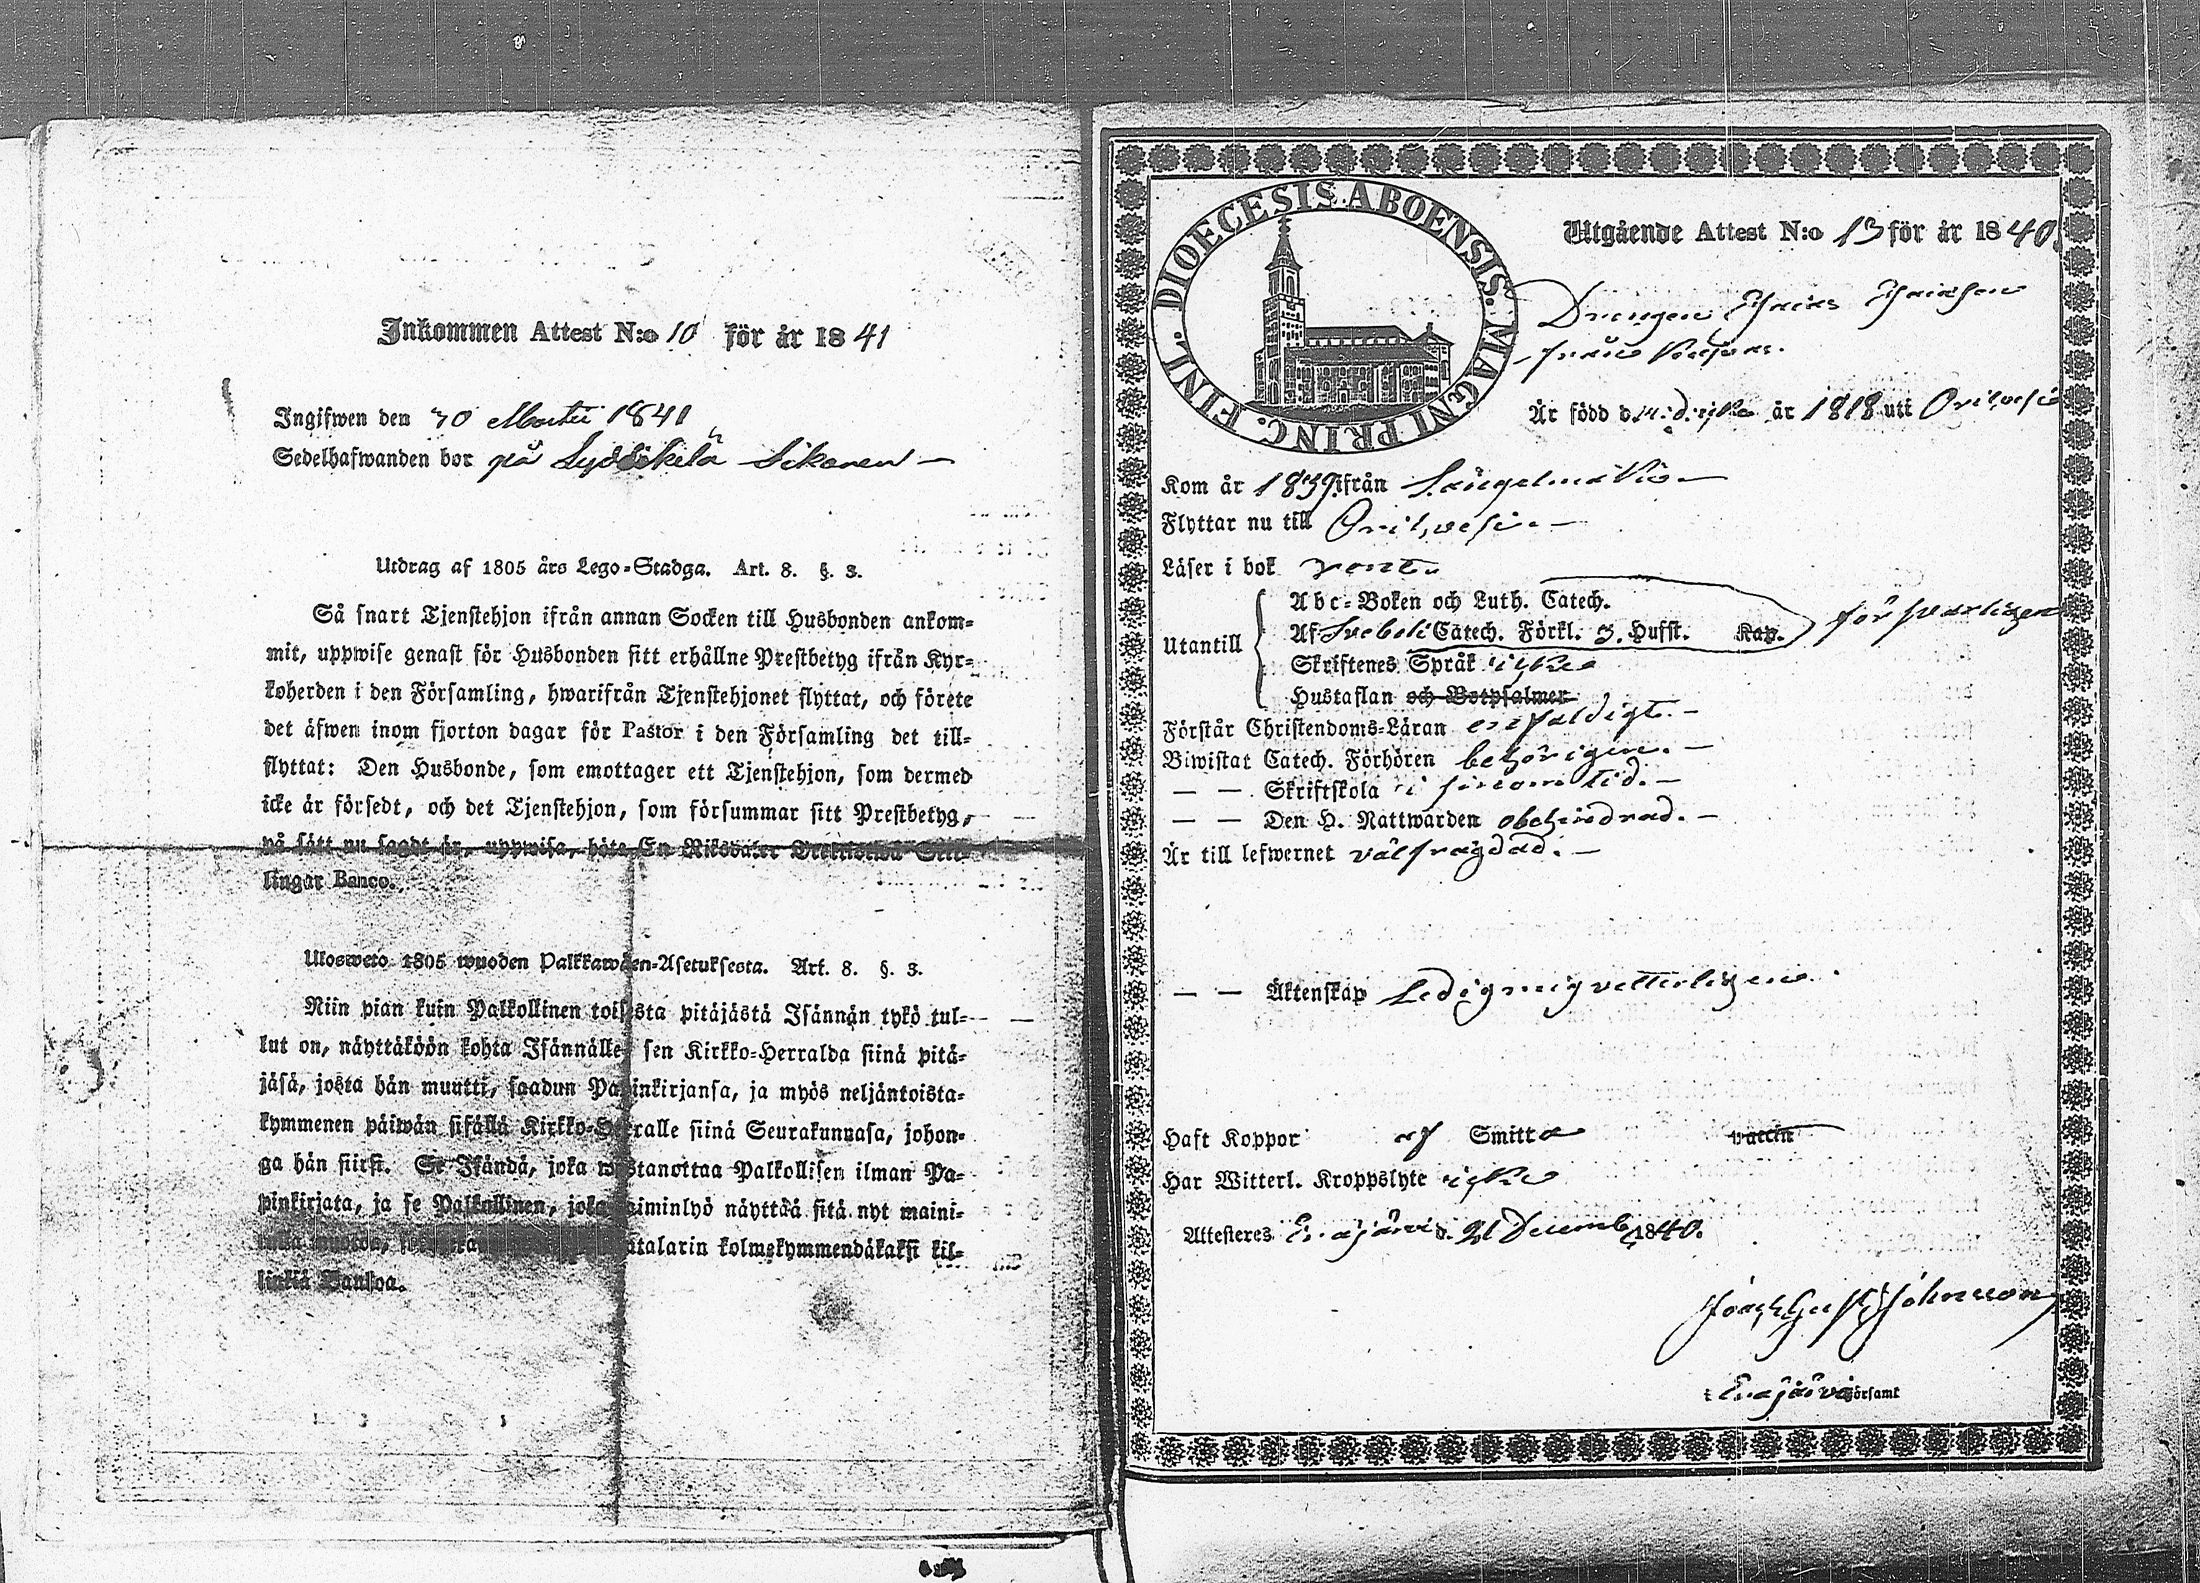 Inkommen Attest N:o 10 för år 1841
Ingifwen den 30 Martii 1841
Sedelhafwanden bor på Sikanen
Utdrag af 1805 års Lego-Stadga. Art. 8. §. 3.
Så snart Tjenstehjon ifrån annan Socken till Husbonden ankom-
mit, uppwise genast för Husbonden sitt erhållne Prestbetyg ifrån Kyr-
koherden i den Församling, hwarifrån Tjenstehjonet flyttat, och förete
det äfwen inom fjorton dagar för Pastor i den Församling det till-
flyttat: Den Husbonde, som emottager ett Tjenstehjon, som dermed
icke är försedt, och det Tjenstehjon, som försummar sitt Prestbetyg,
på sätt nu sagdt är, uppwisa, böte En Riksdaler
lingar Banco.
Ulosweto 1805 wuoden Palkkawäen-Asetuksesta. Art. 8. §. 3.
Niin pian kuin Palkollinen toisesta pitäjästä Isännän tykö tul-
lut on, näyttäköön kohta Isännälle sen Kirkko-Herralda siinä pitä-
jäsä, josta hän muutti, saadun Papinkirjansa, ja myös neljäntoista-
kymmenen päiwän sisällä Kirkko-Herralle siinä Seurakunnasa, johon-
ga hän siirsi. Se Isändä, joka wastanottaa Palkollisen ilman Pa-
pinkirjata, ja se Palkollinen, joka laiminlyö näyttää sitä nyt maini-
kolmekymmendäkaksi kil-
linkiä Bankoa.
DIOECESIS ABOENSIS. MAGNI PRINC. FINL.
Utgående Attest N:o 13 för år 1840.
Drengen
från
Är född d. år 1818 uti Orilvesi
Kom år 1839 ifrån Längelmäki
Flyttar nu till Orilvesi
Läser i bok rent.
Utantill
Abc-Boken och Luth. Catech.
Af Svebeli Catech. Förkl. 3. Hufst. Kap. försvarligen
Skriftenes Språk icke
Hustaflan och Botpsalmer
Förstår Christendoms-Läran enfaldigt.
Biwistat Catech. Förhören behörigen.
— — Skriftskola i sinom tid.
— — Den H. Nattwarden obehindrad.
Är till lefwernet välfrägdad.
— — Äktenskap Ledig
Haft Koppor af Smitta vaccin
Har Witterl. Kroppslyte icke
Attesteres Enajärvi d. 21 Decemb. 1840.
i Enajärvi Församl